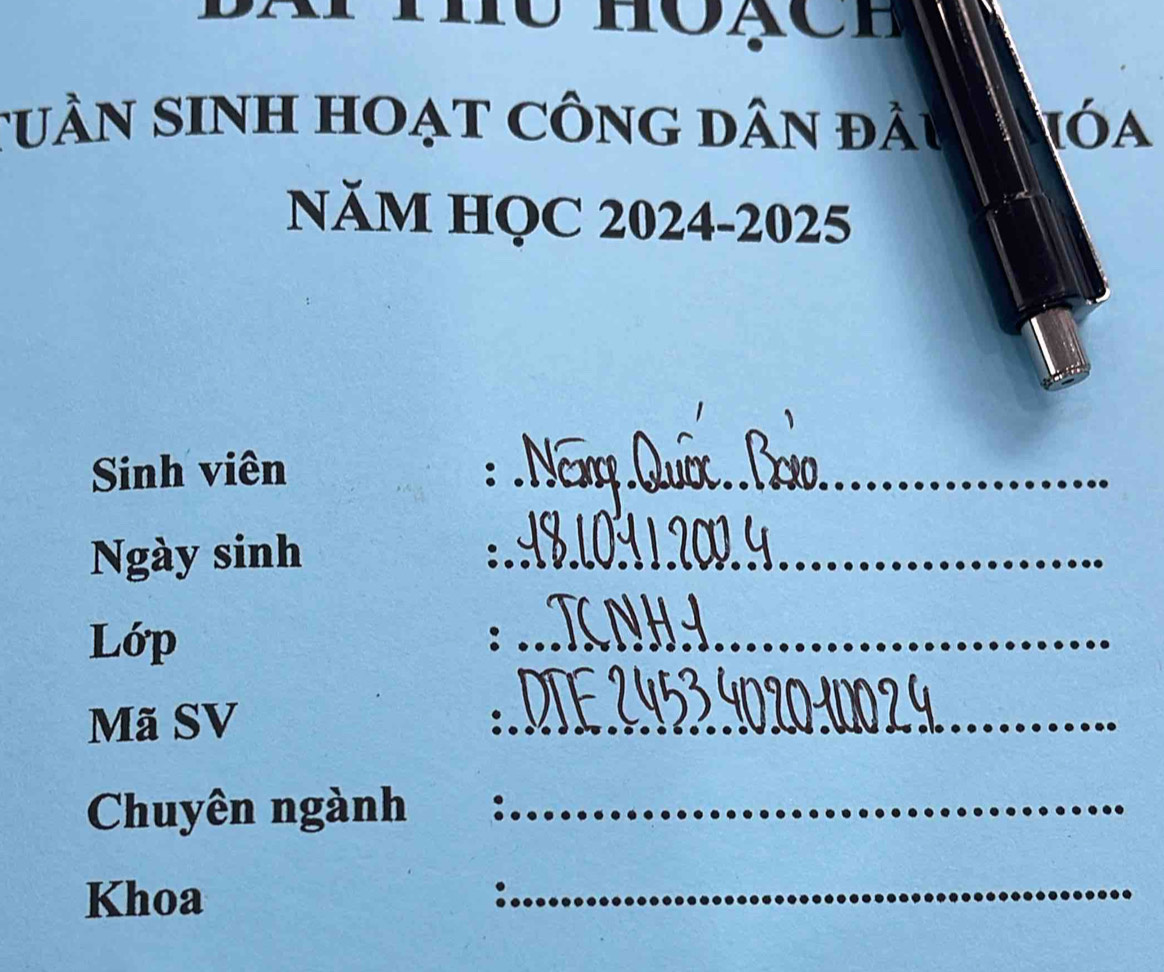 BÀI THU HOẠCH
TUẦN SINH HOẠT CÔNG DÂN ĐẦU KHÓA
NĂM HỌC 2024-2025
Sinh viên : Nông Quốc Bảo
Ngày sinh : 18/01/2004
Lớp : TCNH1
Mã SV : DTE2453402010024
Chuyên ngành :
Khoa :